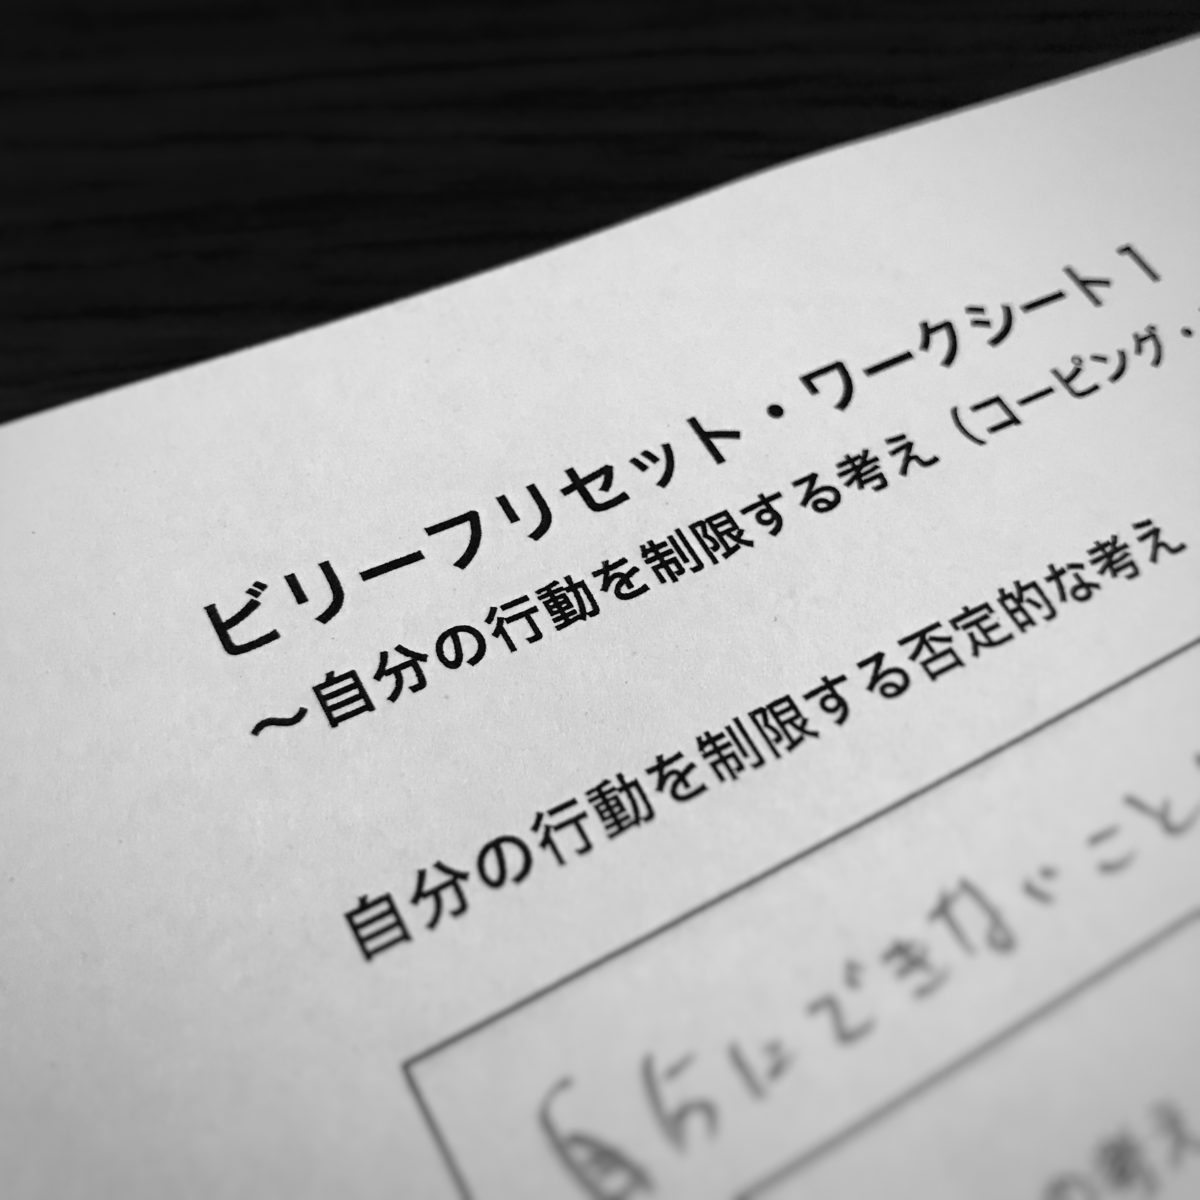 ビリーフリセット・ワークシート1
〜自分の行動を制限する考え（コーピング・
自分の行動を制限する否定的な考え
自分にできないこと
の考え